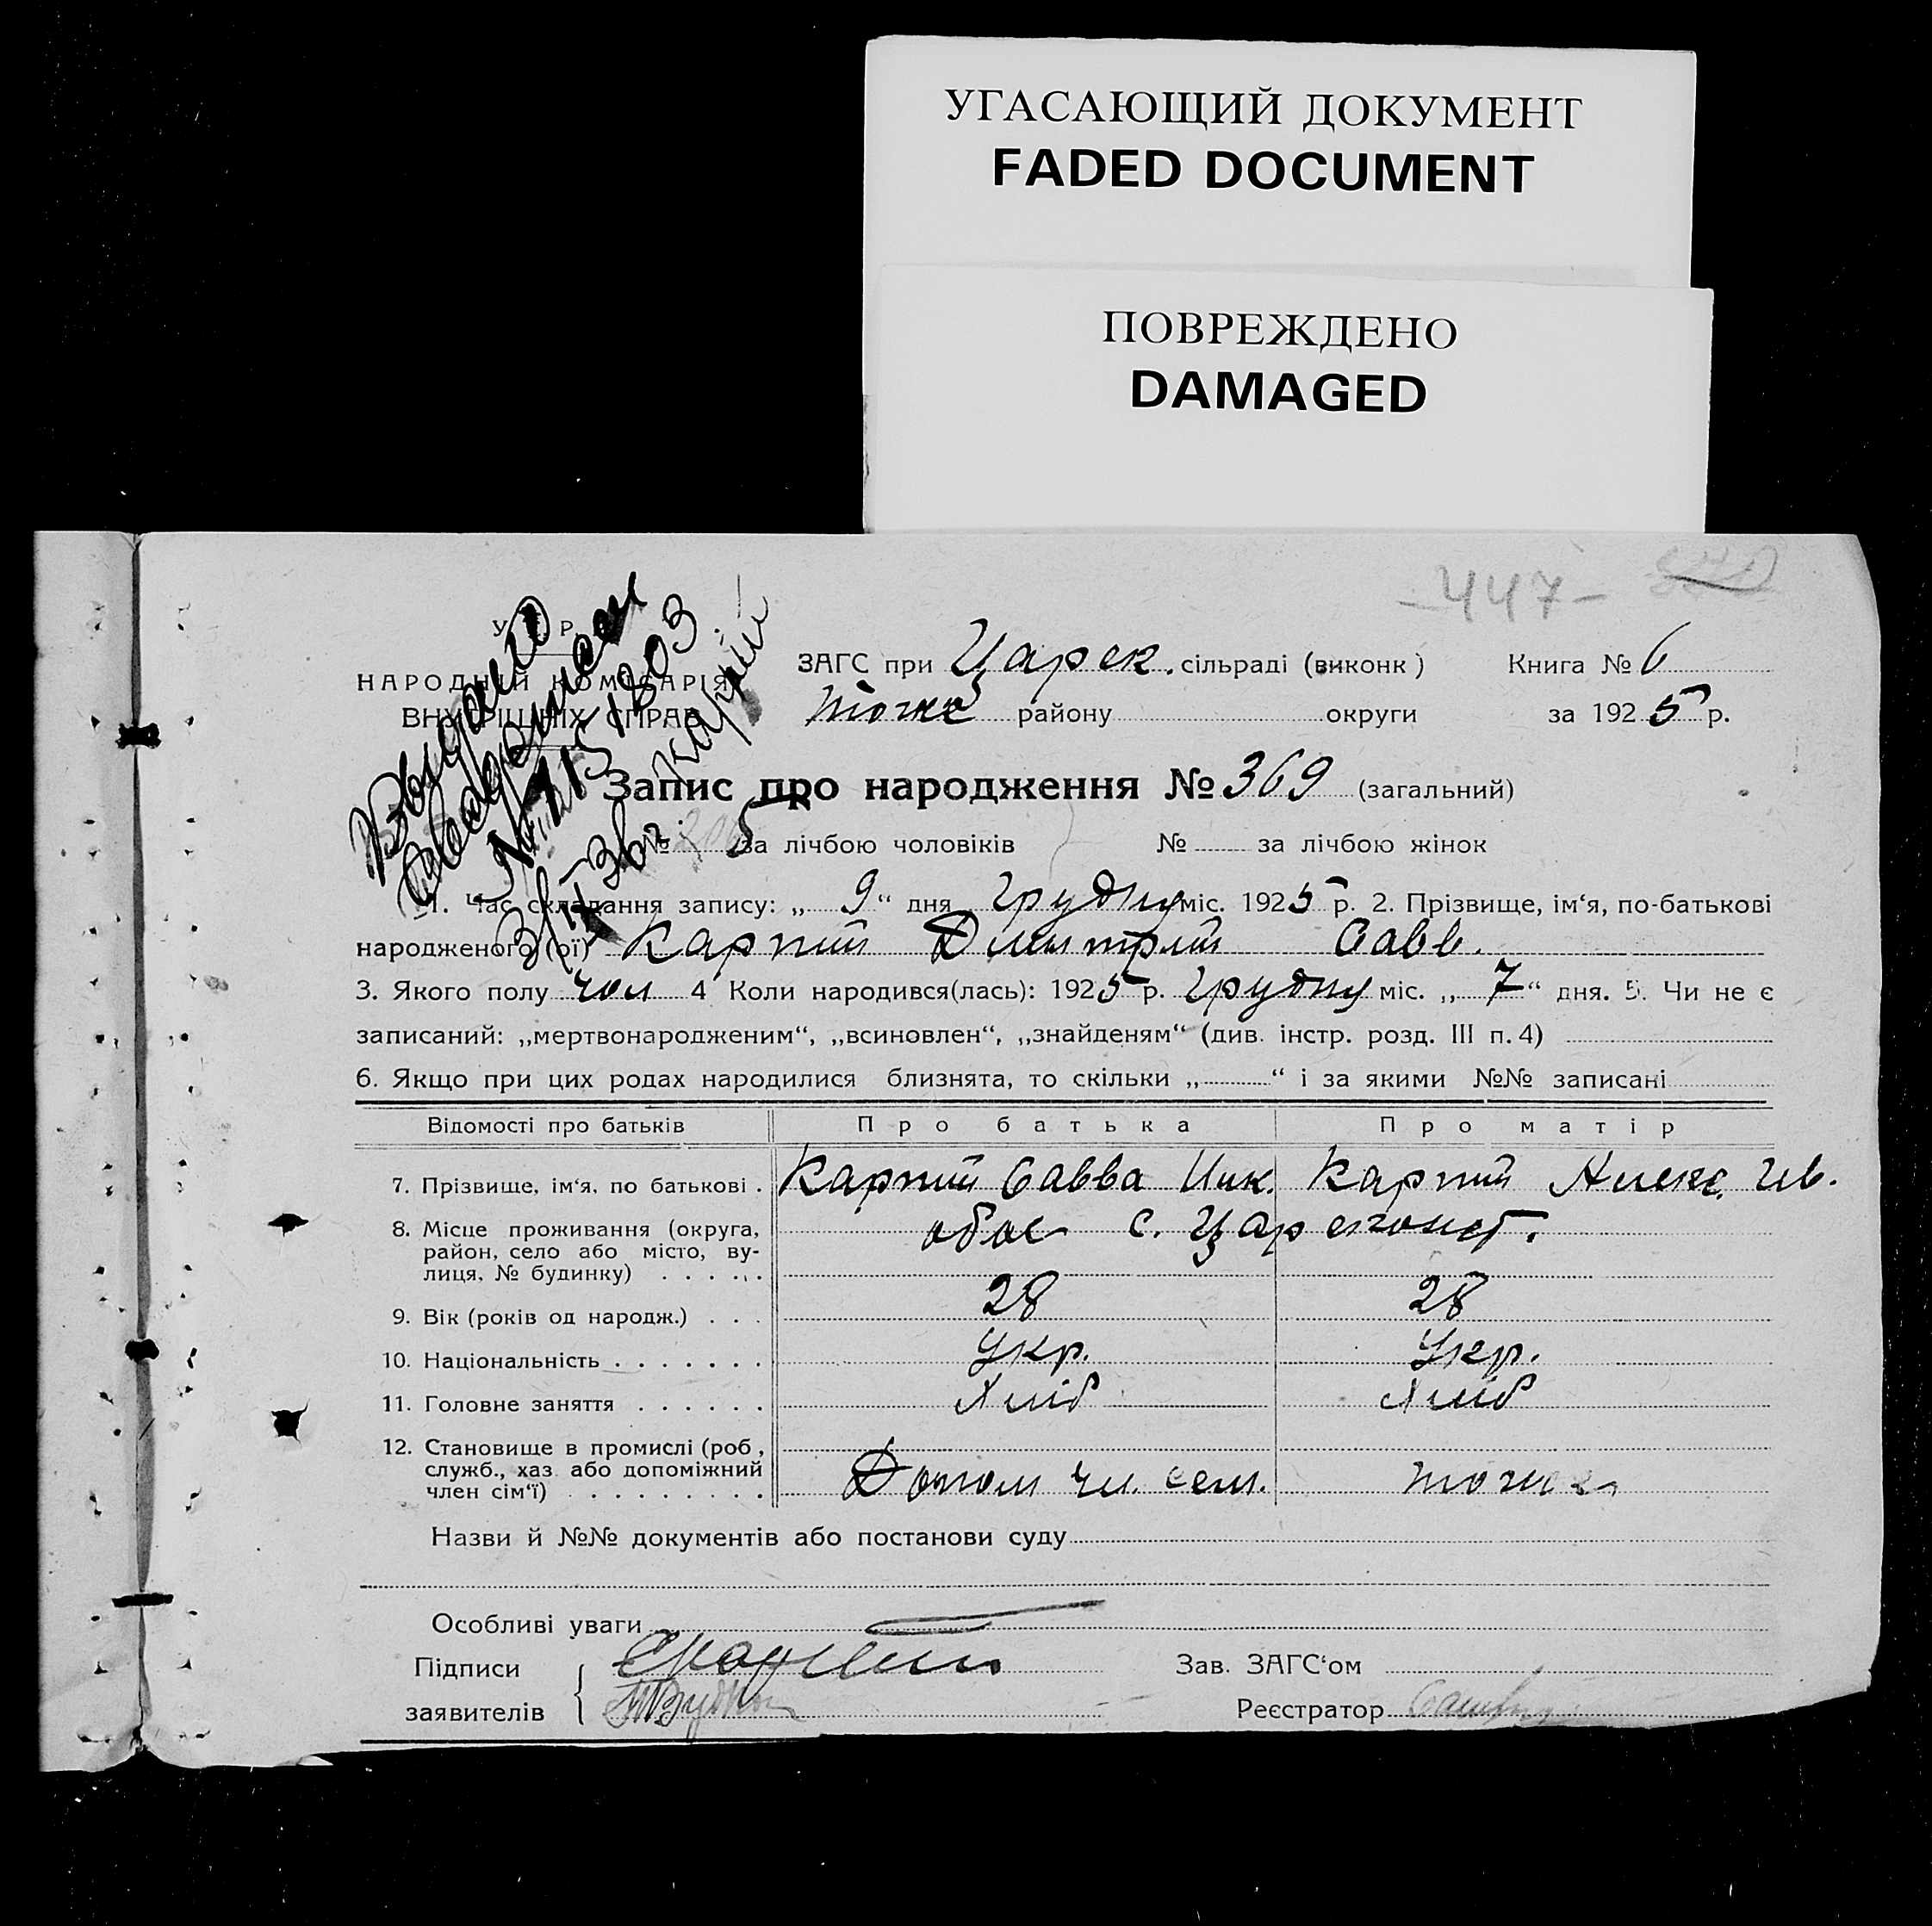 УГАСАЮЩИЙ ДОКУМЕНТ
FADED DOCUMENT
ПОВРЕЖДЕНО
DAMAGED
-447-
У. Р.
НАРОДНІЙ КОМІСАРІЯТ
ВНУТРІШНІХ СПРАВ
Выдано
№ 1803
Карпій
ЗАГС при Царек. сільраді (виконк) Книга № 6
тоже району округи за 1925 р.
Запис про народження № 369 (загальний)
№ за лічбою чоловіків № за лічбою жінок
1. Час складання запису: „ 9 “ дня грудня міс. 1925 р. 2. Прізвище, ім‘я, по-батькові
народженого (ої) Карпий Дмитрий Савв.
3. Якого полу чол 4 Коли народився(лась): 1925 р. грудня міс. „ 7 “ дня. 5. Чи не є
записаний: „мертвонародженим“, „всиновлен“, „знайденям“ (див. інстр. розд. III п. 4)
6. Якщо при цих родах народилися близнята, то скільки „ “ і за якими №№ записані
Відомості про батьків Про батька Про матір
7. Прізвище, ім‘я, по батькові . Карпий Савва Ник. Карпий Алекс. Ив.
8. Місце проживання (округа, район, село або місто, вулиця, № будинку) . . . . . обое с. Цареконст.
9. Вік (років од народж.) . . . 28 28
10. Національність . . . . . . . Укр. Укр.
11. Головне заняття . . . . . . Хліб Хліб
12. Становище в промислі (роб., служб., хаз. або допоміжний член сім‘ї) . . . . . . . . . Допом чл. сем. тоже
Назви й №№ документів або постанови суду
Особливі уваги
Підписи Зав. ЗАГС‘ом
заявителів Реєстратор